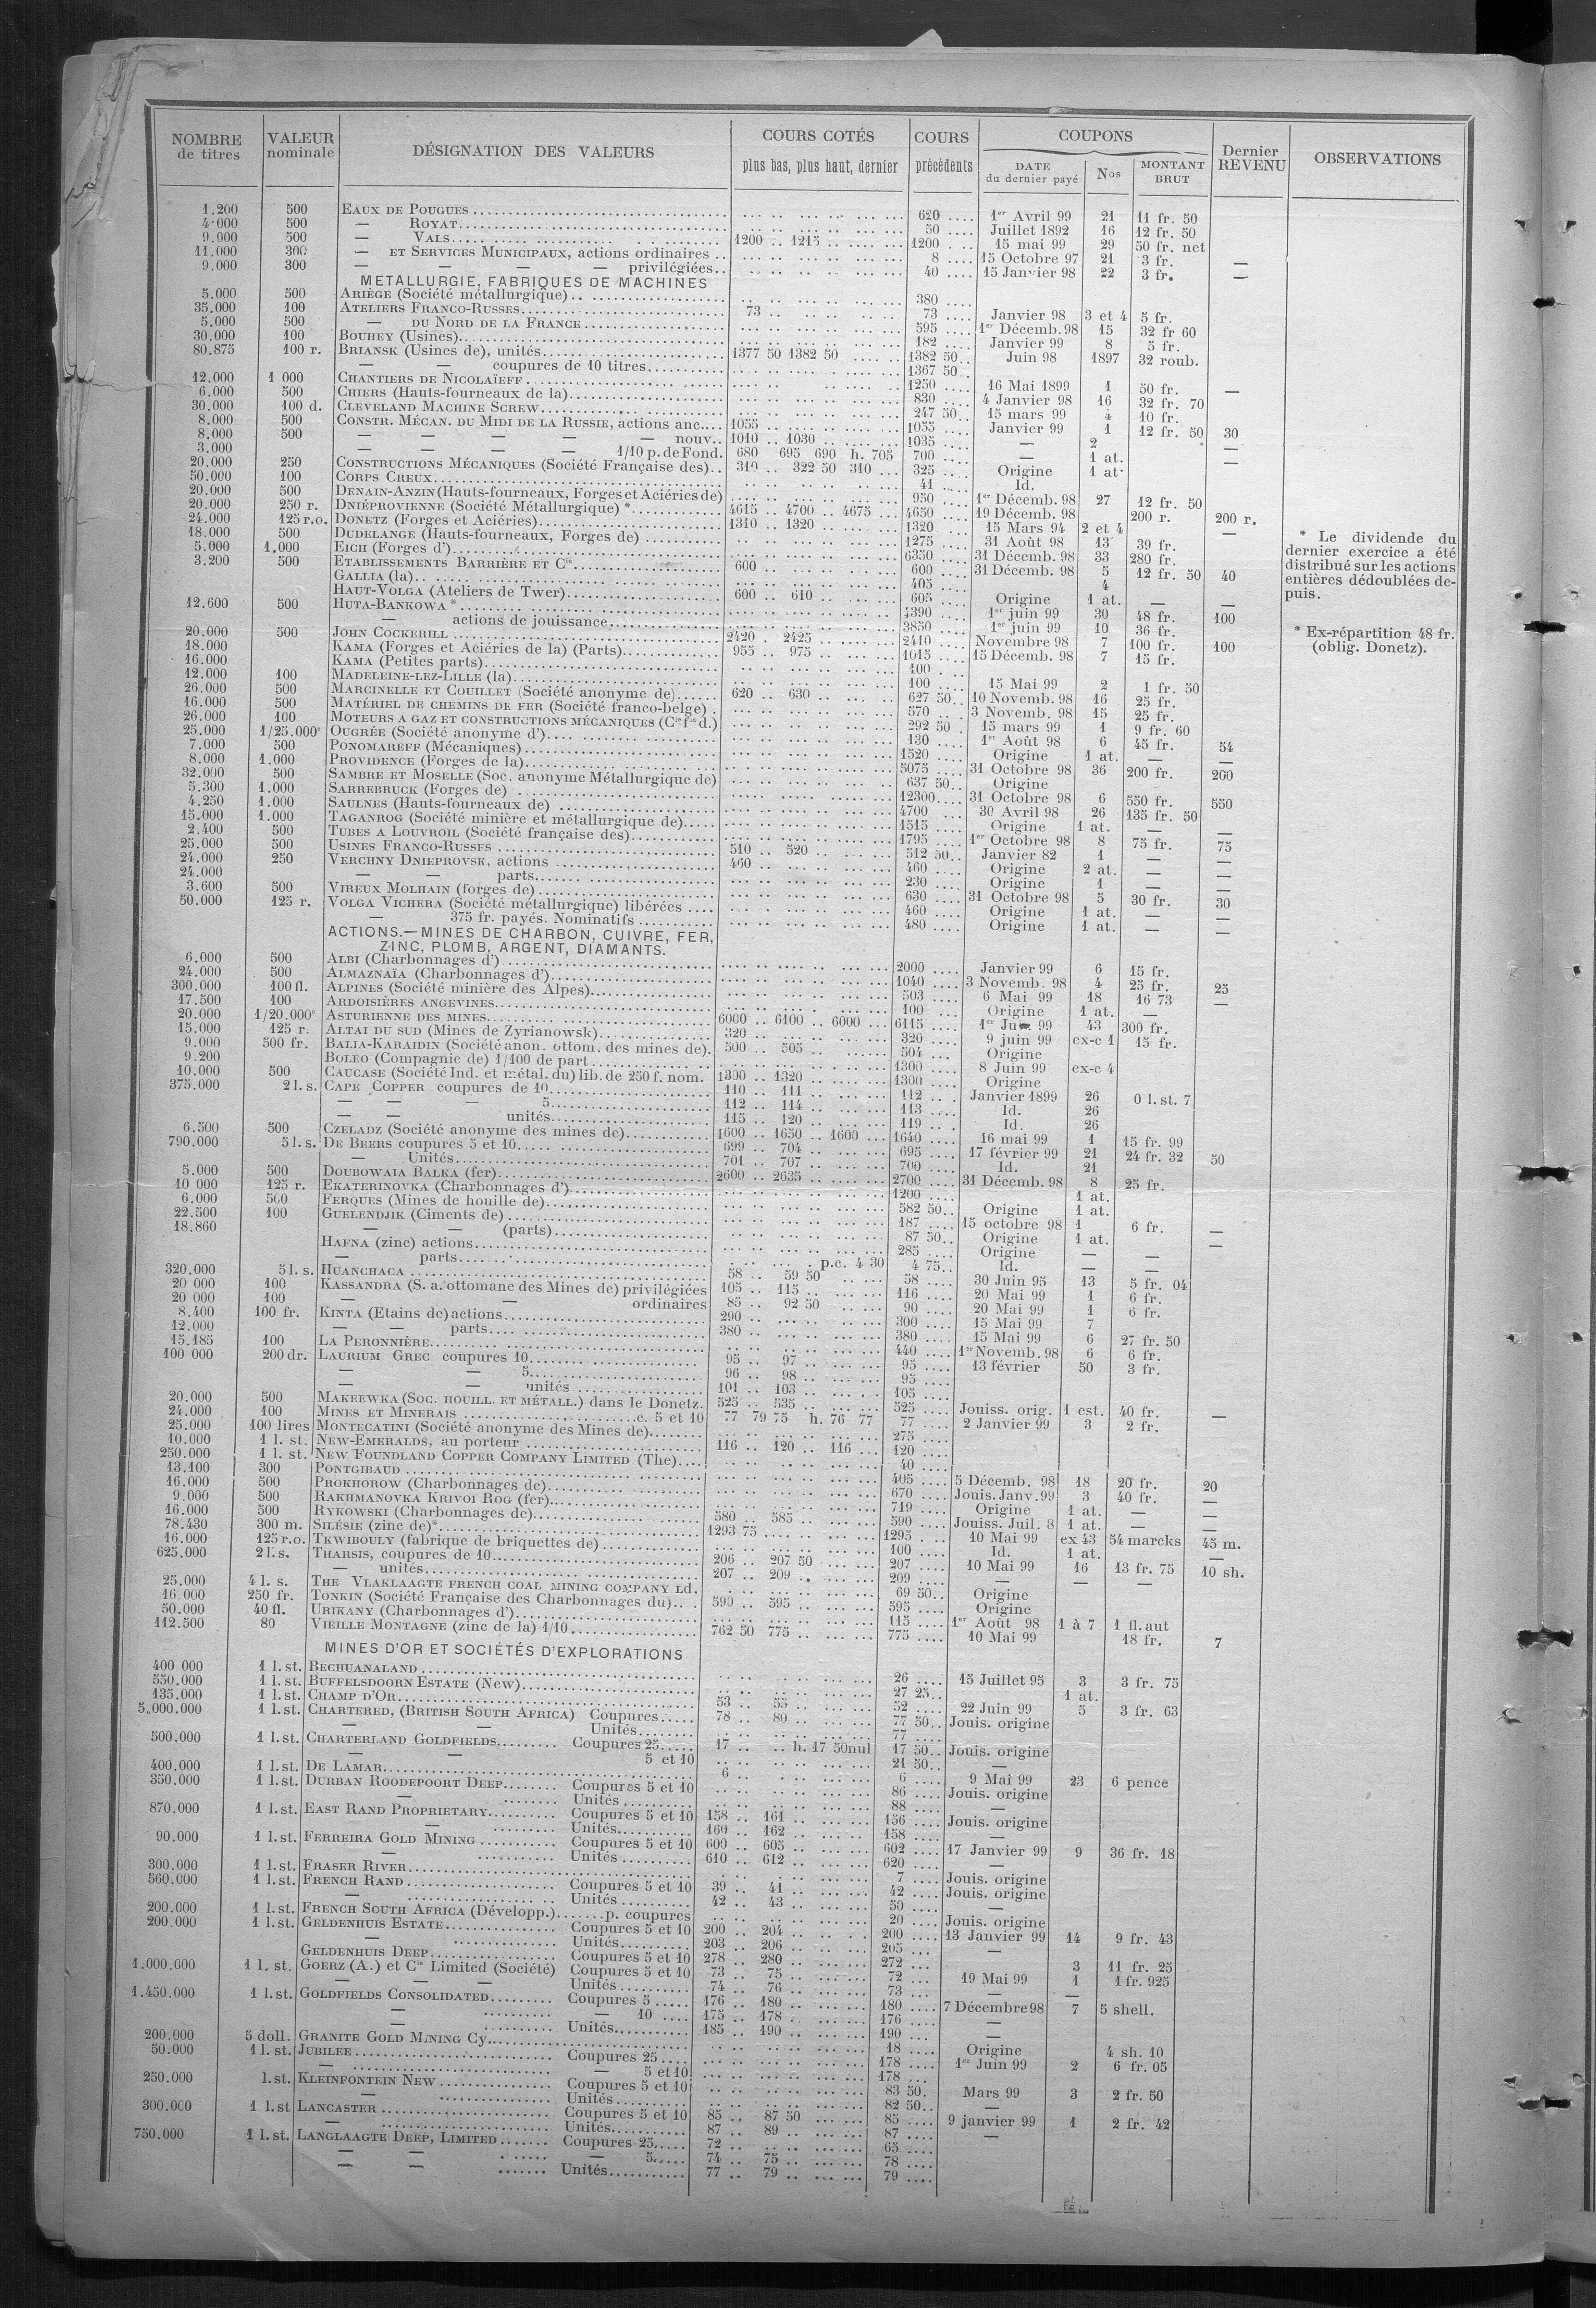 NOMBRE de titres | VALEUR nominale | DÉSIGNATION DES VALEURS | COURS COTÉS plus bas, plus haut, dernier | COURS précédents | COUPONS DATE du dernier payé | Nos | MONTANT BRUT | Dernier REVENU | OBSERVATIONS
1.200 500 EAUX DE POUGUES 620 1er Avril 99 21 11 fr. 50
4.000 500 — ROYAT 50 Juillet 1892 16 12 fr. 50
9.000 500 — VALS 1200 1215 1200 15 mai 99 29 50 fr. net
11.000 300 — ET SERVICES MUNICIPAUX, actions ordinaires 8 15 Octobre 97 21 3 fr. —
9.000 300 — — — — privilégiées 40 15 Janvier 98 22 3 fr. —
METALLURGIE, FABRIQUES DE MACHINES
5.000 500 ARIÈGE (Société métallurgique) 380
35.000 100 ATELIERS FRANCO-RUSSES 73 73 Janvier 98 3 et 4 5 fr.
5.000 500 — DU NORD DE LA FRANCE 595 1er Décemb. 98 15 32 fr 60
30.000 100 BOUHEY (Usines) 182 Janvier 99 8 5 fr.
80.875 100 r. BRIANSK (Usines de), unités 1377 50 1382 50 1382 50 Juin 98 1897 32 roub.
— — coupures de 10 titres 1367 50
12.000 1 000 CHANTIERS DE NICOLAÏEFF 1250 16 Mai 1899 1 50 fr. —
6.000 500 CHIERS (Hauts-fourneaux de la) 830 4 Janvier 98 16 32 fr. 70
30.000 100 d. CLEVELAND MACHINE SCREW 247 50 15 mars 99 4 10 fr.
8.000 500 CONSTR. MÉCAN. DU MIDI DE LA RUSSIE, actions anc. 1055 1055 Janvier 99 1 12 fr. 50 30
8.000 500 — — — — — nouv. 1010 1030 1035 — 2 —
3.000 — — — — 1/10 p. de Fond. 680 695 690 h. 705 700 — 1 at. —
20.000 250 CONSTRUCTIONS MÉCANIQUES (Société Française des) 310 322 50 310 325 Origine 1 at.
50.000 100 CORPS CREUX 41 Id.
20.000 500 DENAIN-ANZIN (Hauts-fourneaux, Forges et Aciéries de) 950 1er Décemb. 98 27 12 fr. 50
20.000 250 r. DNIÉPROVIENNE (Société Métallurgique) * 4615 4700 4675 4650 19 Décemb. 98 200 r. 200 r.
24.000 125 r.o. DONETZ (Forges et Aciéries) 1310 1320 1320 15 Mars 94 2 et 4 —
18.000 500 DUDELANGE (Hauts-fourneaux, Forges de) 1275 31 Août 98 13 39 fr.
5.000 1.000 EICH (Forges d') 6350 31 Décemb. 98 33 280 fr.
3.200 500 ETABLISSEMENTS BARRIÈRE ET Cie 600 600 31 Décemb. 98 5 12 fr. 50 40
GALLIA (la) 405 4
HAUT-VOLGA (Ateliers de Twer) 600 610 605 Origine 1 at. — —
12.600 500 HUTA-BANKOWA * 4390 1er juin 99 30 48 fr. 100
— actions de jouissance 3850 1er juin 99 10 36 fr.
20.000 500 JOHN COCKERILL 2420 2425 2410 Novembre 98 7 100 fr. 100
18.000 KAMA (Forges et Aciéries de la) (Parts) 955 975 1015 15 Décemb. 98 7 15 fr.
16.000 KAMA (Petites parts) 100
12.000 100 MADELEINE-LEZ-LILLE (la) 100 15 Mai 99 2 1 fr. 50
26.000 500 MARCINELLE ET COUILLET (Société anonyme de) 620 630 627 50 10 Novemb. 98 16 25 fr.
16.000 500 MATÉRIEL DE CHEMINS DE FER (Société franco-belge) 570 3 Novemb. 98 15 25 fr.
26.000 100 MOTEURS A GAZ ET CONSTRUCTIONS MÉCANIQUES (Cie fse d.) 292 50 15 mars 99 1 9 fr. 60
25.000 1/25.000e OUGRÉE (Société anonyme d') 130 1er Août 98 6 45 fr. 54
7.000 500 PONOMAREFF (Mécaniques) 1520 Origine 1 at. — —
8.000 1.000 PROVIDENCE (Forges de la) 5075 31 Octobre 98 36 200 fr. 200
32.000 500 SAMBRE ET MOSELLE (Soc. anonyme Métallurgique de) 637 50 Origine
5.300 1.000 SARREBRUCK (Forges de) 12300 31 Octobre 98 6 550 fr. 550
4.250 1.000 SAULNES (Hauts-fourneaux de) 4700 30 Avril 98 26 135 fr. 50
15.000 1.000 TAGANROG (Société minière et métallurgique de) 1515 Origine 1 at. — —
2.400 500 TUBES A LOUVROIL (Société française des) 1795 1er Octobre 98 8 75 fr. 75
25.000 500 USINES FRANCO-RUSSES 510 520 512 50 Janvier 82 1 — —
24.000 250 VERCHNY DNIEPROVSK, actions 460 460 Origine 2 at. — —
24.000 — — parts 230 Origine 1 — —
3.600 500 VIREUX MOLHAIN (forges de) 630 31 Octobre 98 5 30 fr. 30
50.000 125 r. VOLGA VICHERA (Société métallurgique) libérées 460 Origine 1 at. — —
— 375 fr. payés. Nominatifs 480 Origine 1 at. — —
ACTIONS.— MINES DE CHARBON, CUIVRE, FER,
ZINC, PLOMB, ARGENT, DIAMANTS.
6.000 500 ALBI (Charbonnages d') 2000 Janvier 99 6 15 fr.
24.000 500 ALMAZNAÏA (Charbonnages d') 1040 3 Novemb. 98 4 25 fr. 25
300.000 100 fl. ALPINES (Société minière des Alpes) 503 6 Mai 99 18 16 73 —
17.500 100 ARDOISIÈRES ANGEVINES 100 Origine 1 at. —
20.000 1/20.000e ASTURIENNE DES MINES 6000 6100 6000 6115 1er 99 43 300 fr.
15.000 125 r. ALTAI DU SUD (Mines de Zyrianowsk) 320 320 9 juin 99 ex-c 1 15 fr.
9.000 500 fr. BALIA-KARAIDIN (Société anon. ottom. des mines de) 500 505 504 Origine
9.200 BOLEO (Compagnie de) 1/100 de part 1300 8 Juin 99 ex-c 4
10.000 500 CAUCASE (Société Ind. et métal. du) lib. de 250 f. nom. 1300 1320 1300 Origine
375.000 2 l. s. CAPE COPPER coupures de 10 110 111 112 Janvier 1899 26 0 l. st. 7
— — — 5 112 114 113 Id. 26
— — unités 115 120 119 Id. 26
6.500 500 CZELADZ (Société anonyme des mines de) 1600 1650 1600 1640 16 mai 99 1 15 fr. 99
790.000 5 l. s. DE BEERS coupures 5 et 10 699 704 695 17 février 99 21 24 fr. 32 50
— Unités 701 707 700 Id. 21
5.000 500 DOUBOWAIA BALKA (fer) 2600 2635 2700 31 Décemb. 98 8 25 fr.
10 000 125 r. EKATERINOVKA (Charbonnages d') 1200 1 at.
6.000 500 FERQUES (Mines de houille de) 582 50 Origine 1 at.
22.500 100 GUELENDJIK (Ciments de) 187 15 octobre 98 1 6 fr. —
18.860 — — (parts) 87 50 Origine 1 at. —
HAFNA (zinc) actions 285 Origine — —
— parts p.c. 4 30 4 75 Id. — —
320.000 5 l. s. HUANCHACA 58 59 50 58 30 Juin 95 13 5 fr. 04
20 000 100 KASSANDRA (S. a. ottomane des Mines de) privilégiées 105 115 116 20 Mai 99 1 6 fr.
20 000 100 — — ordinaires 85 92 50 90 20 Mai 99 1 6 fr.
8.400 100 fr. KINTA (Etains de) actions 290 300 15 Mai 99 7
12.000 — — parts 380 380 15 Mai 99 6 27 fr. 50
15.185 100 LA PERONNIÈRE 440 1er Novemb. 98 6 6 fr.
100 000 200 dr. LAURIUM GREC coupures 10 95 97 95 13 février 50 3 fr.
— — 5 96 98 95
— — unités 101 103 105
20.000 500 MAKEEWKA (SOC. HOUILL. ET MÉTALL.) dans le Donetz. 525 535 525 Jouiss. orig. 1 est. 40 fr. —
24.000 100 MINES ET MINERAIS c. 5 et 10 77 79 75 h. 76 77 77 2 Janvier 99 3 2 fr.
25.000 100 lires MONTECATINI (Société anonyme des Mines de) 275
10.000 1 l. st. NEW-EMERALDS, au porteur 116 120 116 120
250.000 1 l. st. NEW FOUNDLAND COPPER COMPANY LIMITED (The) 40
13.100 300 PONTGIBAUD 405 5 Décemb. 98 18 20 fr. 20
16.000 500 PROKHOROW (Charbonnages de) 670 Jouis. Janv. 99 3 40 fr. —
9.000 500 RAKHMANOVKA KRIVOI ROG (fer) 719 Origine 1 at. — —
16.000 500 RYKOWSKI (Charbonnages de) 580 585 590 Jouiss. Juil. 8 1 at. — —
78.430 300 m. SILÉSIE (zinc de)* 1293 75 1295 10 Mai 99 ex 43 54 marcks 45 m.
16.000 125 r.o. TKWIBOULY (fabrique de briquettes de) 100 Id. 1 at. —
625.000 2 l. s. THARSIS, coupures de 10 206 207 50 207 10 Mai 99 16 13 fr. 75 10 sh.
— unités 207 209 209 — — —
25.000 4 l. s. THE VLAKLAAGTE FRENCH COAL MINING COMPANY Ld. 69 50 Origine
16.000 250 fr. TONKIN (Société Française des Charbonnages du) 590 595 595 Origine
50.000 40 fl. URIKANY (Charbonnages d') 115 1er Août 98 1 à 7 1 fl. aut
112.500 80 VIEILLE MONTAGNE (zinc de la) 1/10 762 50 775 775 10 Mai 99 18 fr. 7
MINES D'OR ET SOCIÉTÉS D'EXPLORATIONS
400 000 1 l. st. BECHUANALAND 26 15 Juillet 95 3 3 fr. 75
550.000 1 l. st. BUFFELSDOORN ESTATE (New) 27 25 1 at.
135.000 1 l. st. CHAMP D'OR 53 55 52 22 Juin 99 5 3 fr. 63
5.000.000 1 l. st. CHARTERED, (BRITISH SOUTH AFRICA) Coupures 78 80 77 50 Jouis. origine
— — Unités 77
500.000 1 l. st. CHARTERLAND GOLDFIELDS Coupures 25 17 h. 17 50 nul 17 50 Jouis. origine
— — 5 et 10 21 50 —
400.000 1 l. st. DE LAMAR 6 6 9 Mai 99 23 6 pence
350.000 1 l. st. DURBAN ROODEPOORT DEEP Coupures 5 et 10 86 Jouis. origine
— Unités 88 —
870.000 1 l. st. EAST RAND PROPRIETARY Coupures 5 et 10 158 161 156 Jouis. origine
— Unités 160 162 158 —
90.000 1 l. st. FERREIRA GOLD MINING Coupures 5 et 10 600 605 602 17 Janvier 99 9 36 fr. 18
— Unités 610 612 620 —
300.000 1 l. st. FRASER RIVER 7 Jouis. origine
560.000 1 l. st. FRENCH RAND Coupures 5 et 10 39 41 42 Jouis. origine
— Unités 42 43 50 —
200.000 1 l. st. FRENCH SOUTH AFRICA (Développ.) p. coupures 20 Jouis. origine
200.000 1 l. st. GELDENHUIS ESTATE Coupures 5 et 10 200 204 200 13 Janvier 99 14 9 fr. 43
— Unités 203 206 205 —
GELDENHUIS DEEP Coupures 5 et 10 278 280 272 3 11 fr. 25
1.000.000 1 l. st. GOERZ (A.) et Cie Limited (Société) Coupures 5 et 10 73 75 72 19 Mai 99 1 1 fr. 925
— — — Unités 74 76 73 — —
1.450.000 1 l. st. GOLDFIELDS CONSOLIDATED Coupures 5 176 180 180 7 Décembre 98 7 5 shell.
— — 10 175 178 176 —
— Unités 185 190 190 —
200.000 5 doll. GRANITE GOLD MINING Cy 18 Origine 4 sh. 10
50.000 1 l. st. JUBILEE Coupures 25 178 1er Juin 99 2 6 fr. 05
— — 5 et 10 178
250.000 l. st. KLEINFONTEIN NEW Coupures 5 et 10 83 50 Mars 99 3 2 fr. 50
— Unités 82 50 —
300.000 1 l. st LANCASTER Coupures 5 et 10 85 87 50 85 9 janvier 99 1 2 fr. 42
— Unités 87 89 87 —
750.000 1 l. st. LANGLAAGTE DEEP, LIMITED Coupures 25 72 65
— — — 5 74 75 78
— — Unités 77 79 79
* Le dividende du
dernier exercice a été
distribué sur les actions
entières dédoublées de-
puis.
* Ex-répartition 48 fr.
(oblig. Donetz).